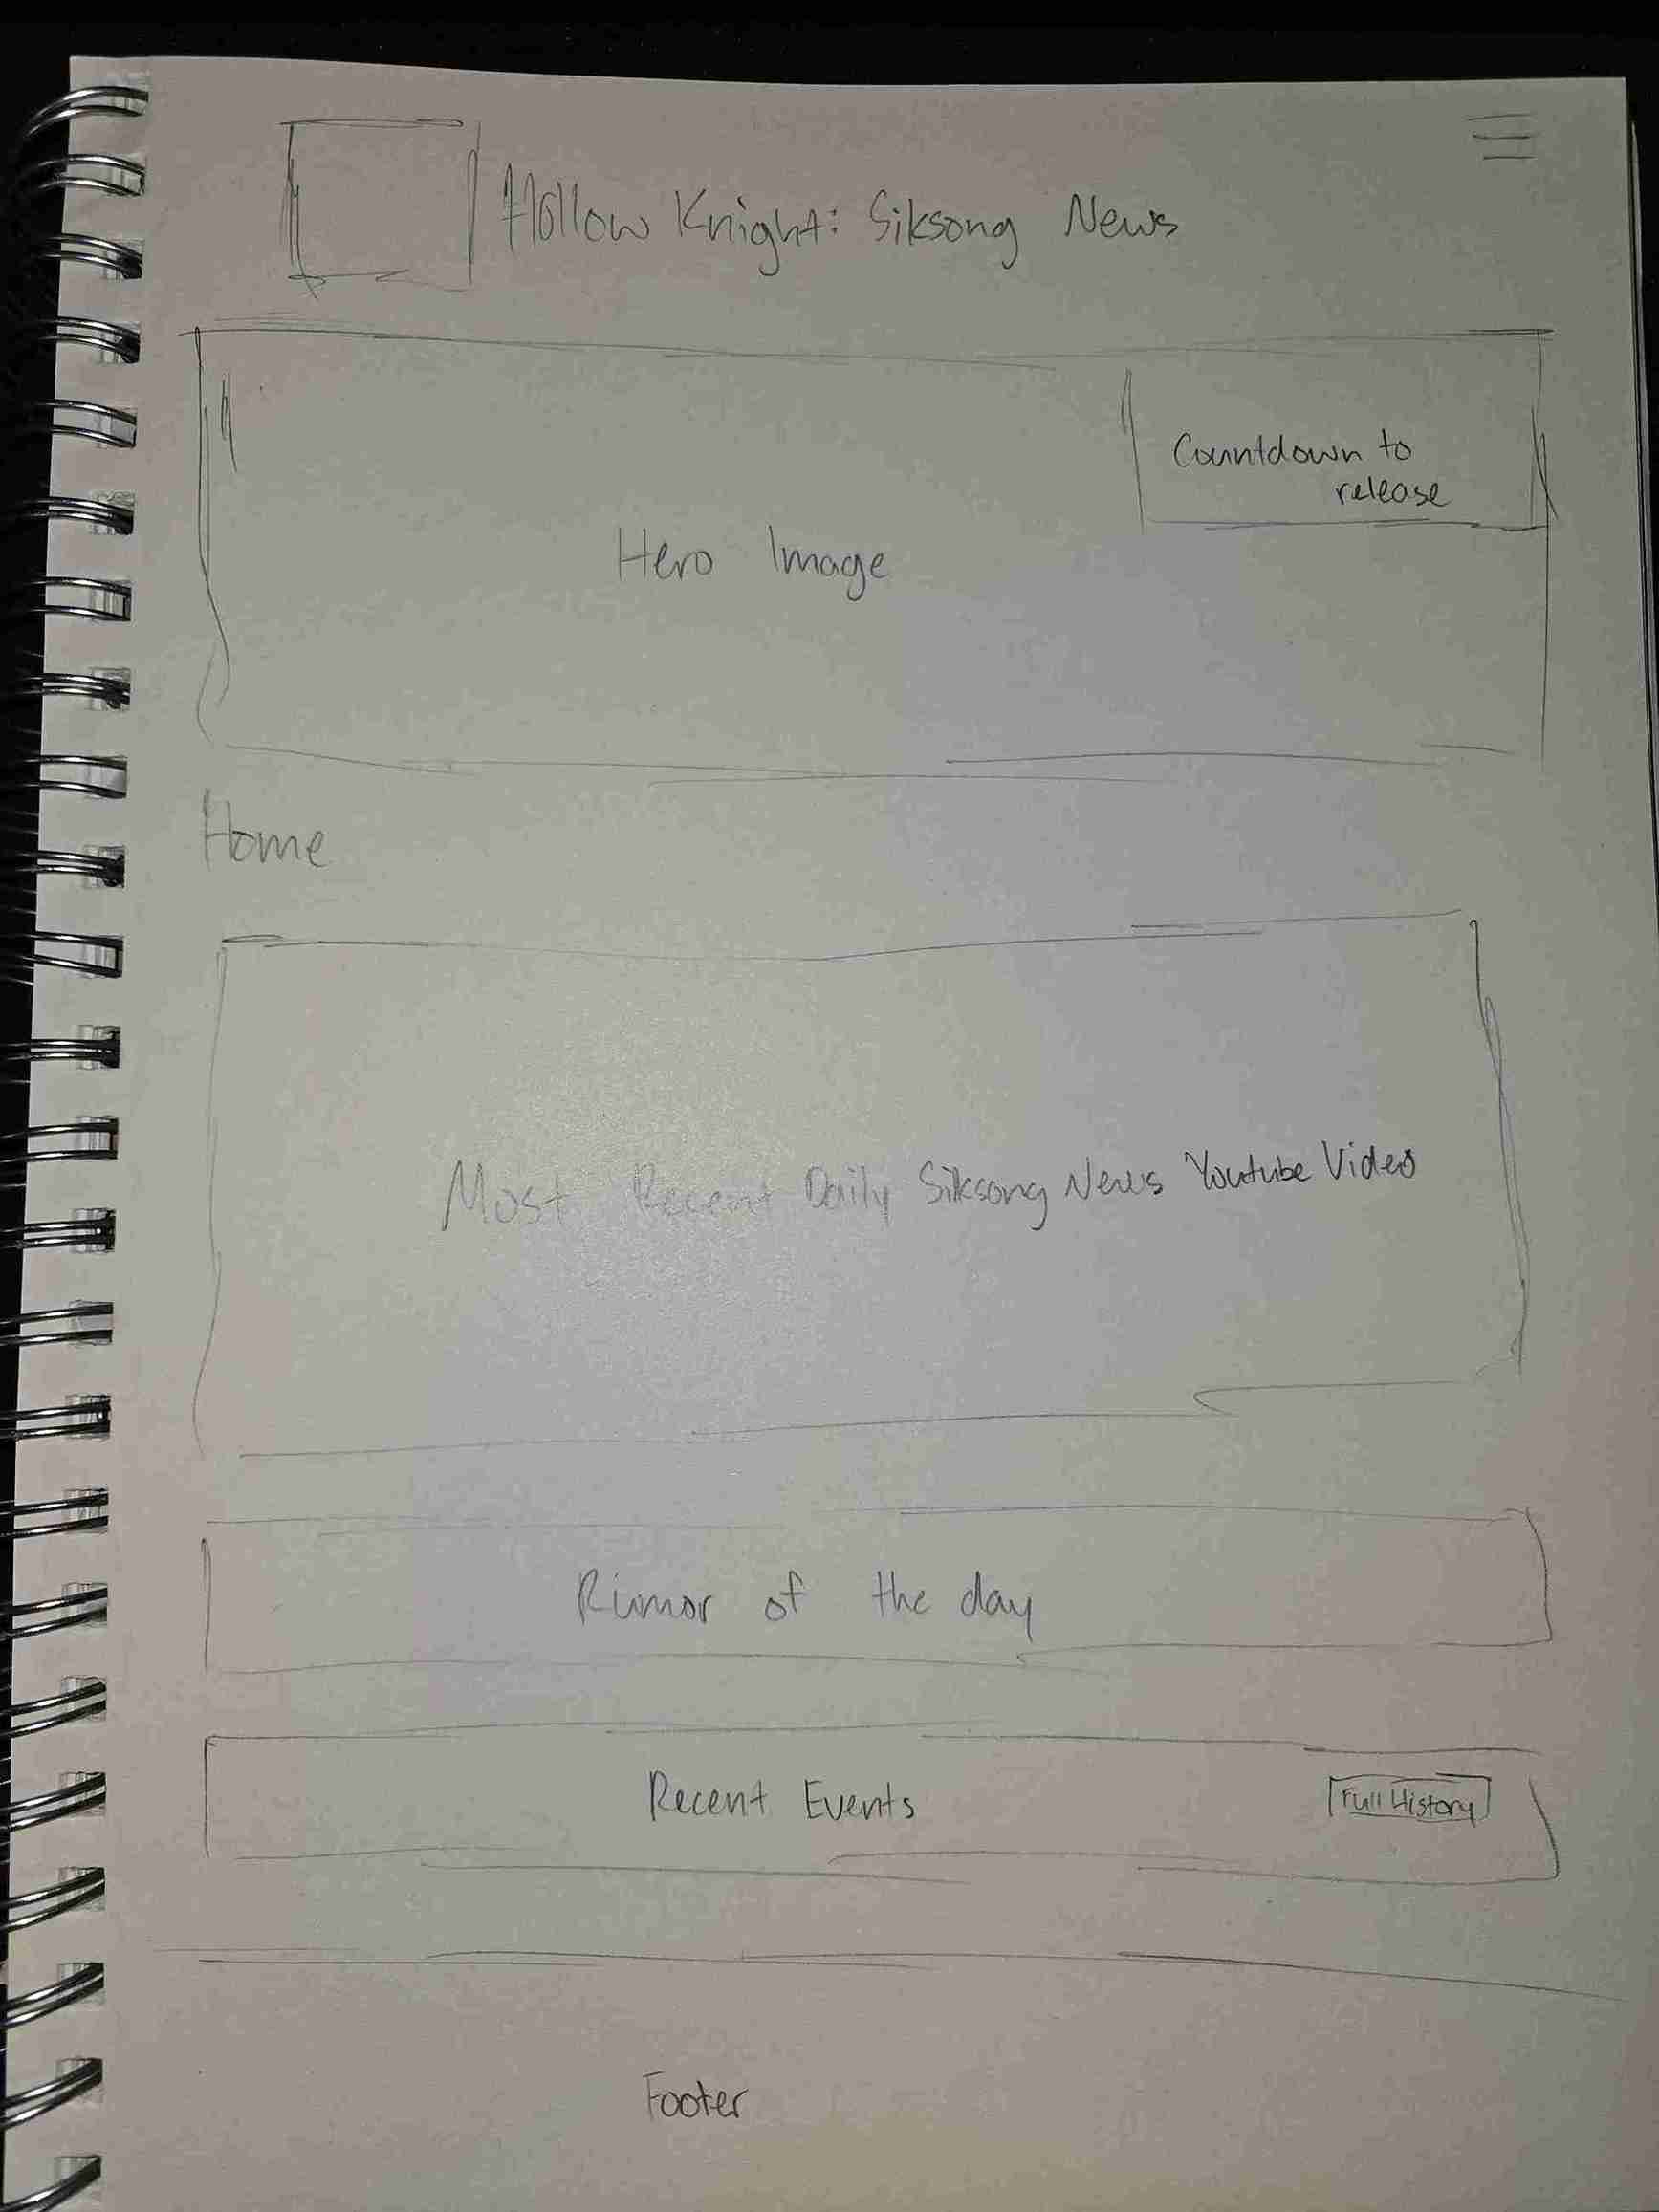 Hollow Knight: Siksong News
Countdown to
release
Hero Image
Home
Most Recent Daily Siksong News Youtube Video
Rumor of the day
Recent Events
Full History
Footer